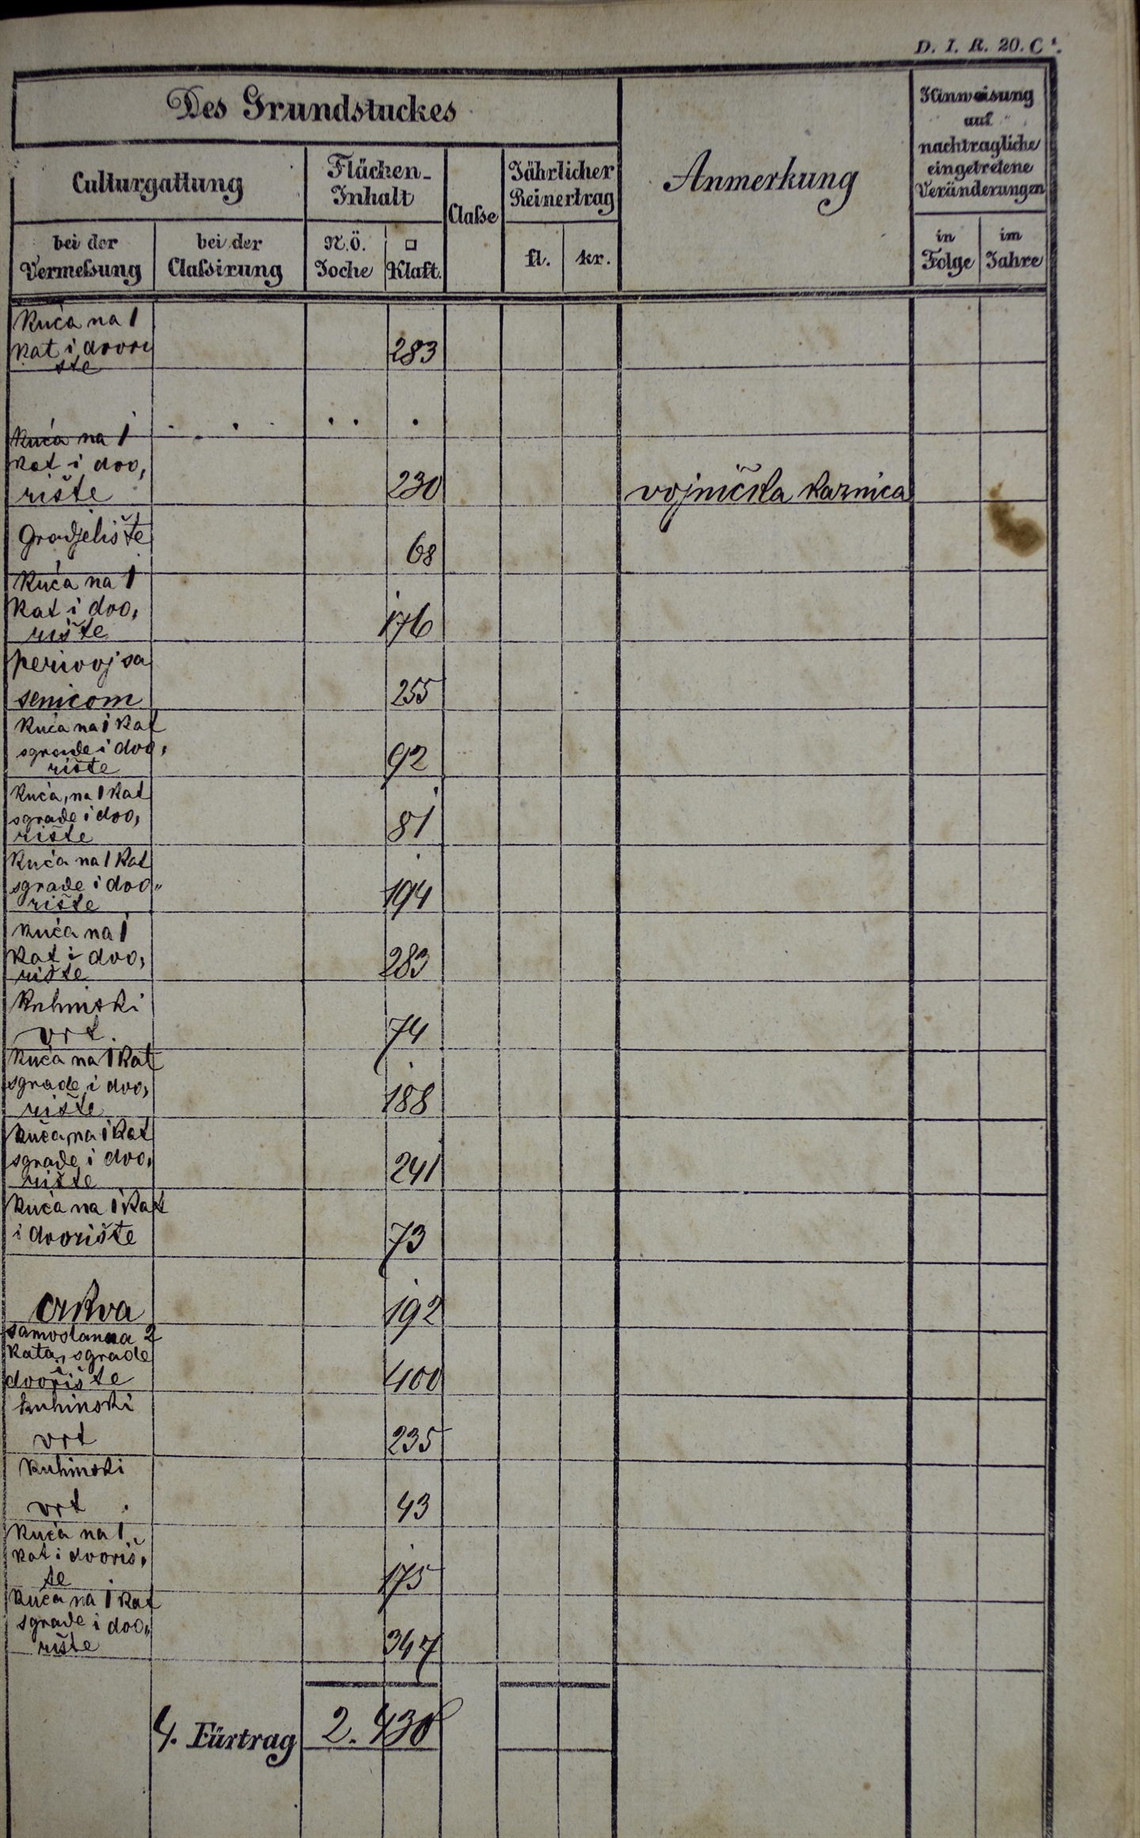 D. I. R. 20. C
Des Grundstuckes
Anmerkung
Hinweisung
auf
nachtragliche
eingetretene
Veränderungen
Culturgattung
Flächen-
Inhalt
Claße
Jährlicher
Reinertrag
bei der
Vermeßung
bei der
Classirung
N.Ö.
Joche
□
Klaft.
fl.
kr.
in
Folge
im
Jahre
Kuća na 1
kat i dvori
šte
283
Kuća na 1
kat i dvo,
rište
230
vojnička kaznica
Gradjelište
68
Kuća na 1
Kat i dvo,
rište
176
perivoj sa
senicom
255
Kuća na 1 kat
sgrade i dvo,
rište
92
Kuća, na 1 kat
sgrade i dvo,
rište
81
Kuća na 1 kat
sgrade i dvo„
rište
194
Kuća na 1
kat i dvo,
rište
283
Kuhinski
vrt.
74
Kuća na 1 kat
sgrade i dvo,
rište
188
Kuća, na 1 kat
sgrade i dvo,
rište
241
Kuća na 1 kat
i dvorište
73
crkva
192
samostan na 2
kata, sgrade i
dvorište
400
kuhinski
vrt
235
Kuhinski
vrt
43
Kuća na 1
kat i dvoriš,
te
175
Kuća na 1 kat
sgrade i dvo„
rište
347
4. Fürtrag 2. 430